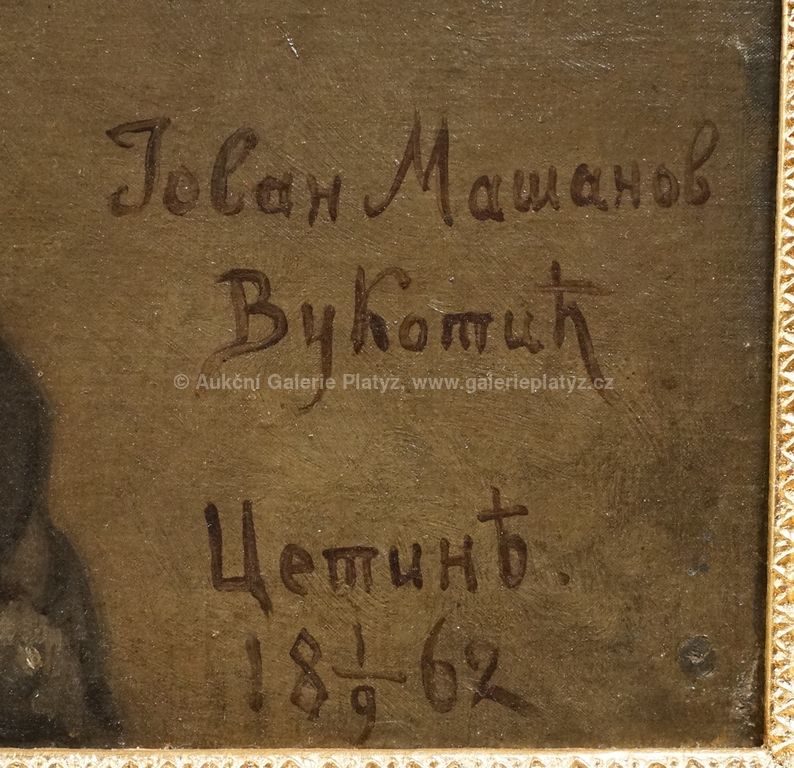 Јован Машанов
Вукотић
© Aukční Galerie Platýz, www.galerieplatyz.cz
Цетинѣ.
18 1/9 62